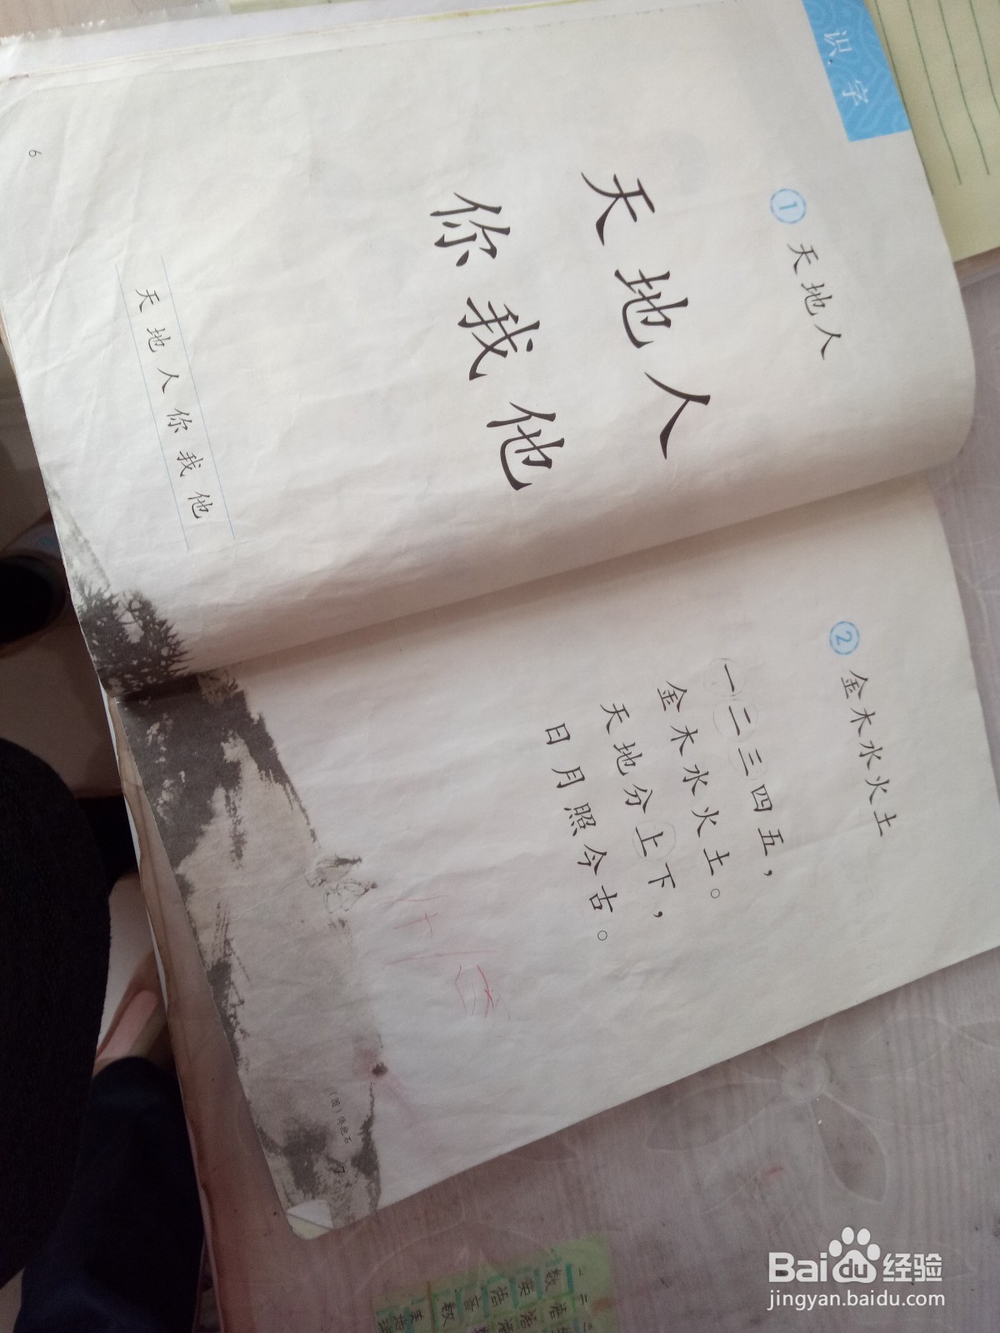 识字
1 天地人
天地人
你我他
天地人你我他
6
2 金木水火土
一二三四五，
金木水火土。
天地分上下，
日月照今古。
7
Baidu经验
jingyan.baidu.com